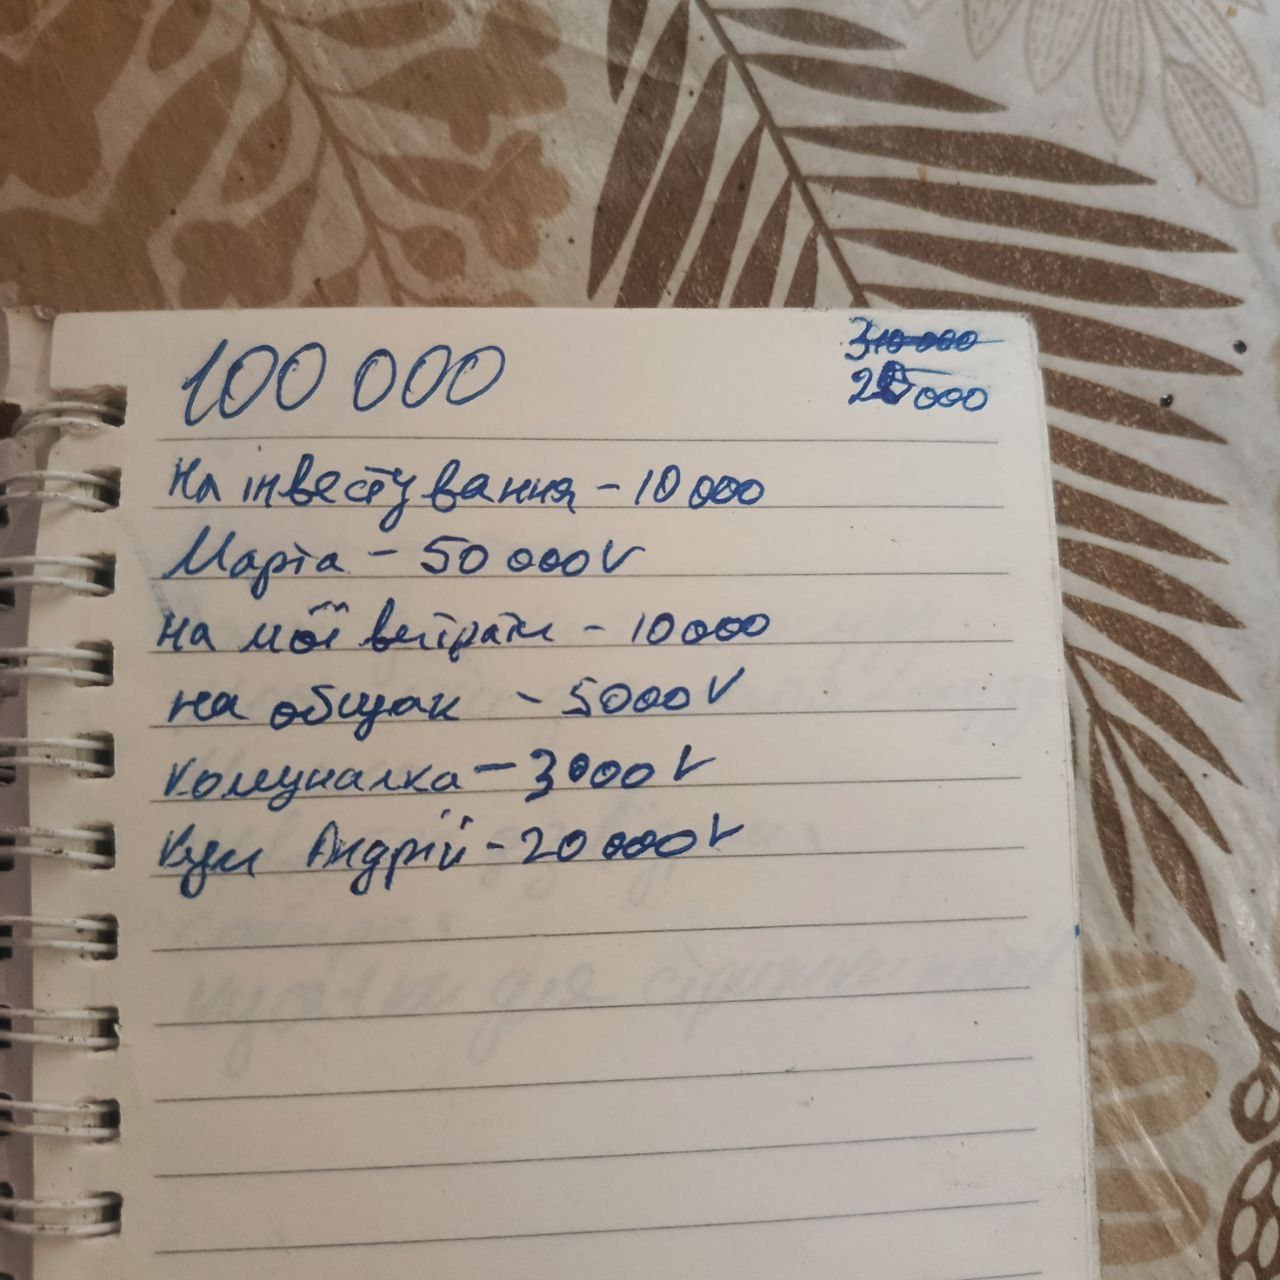 100 000
310 000
25 000
На інвестування - 10 000
Марта - 50 000 V
На мої витрати - 10 000
на общак - 5000 V
Комуналка - 3000 V
Кум Андрій - 20 000 V